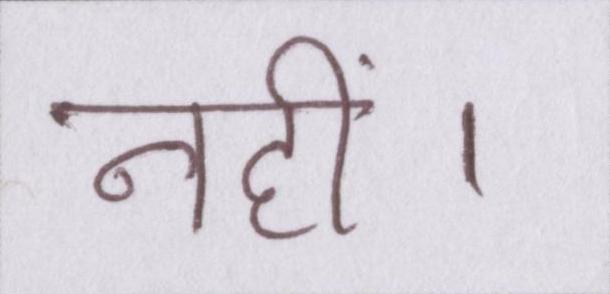 नहीं ।